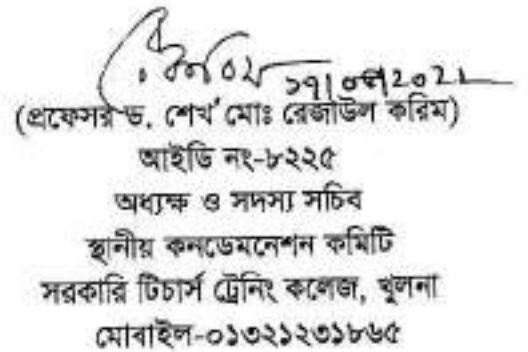 (প্রফেসর ড. শেখ মোঃ রেজাউল করিম)
আইডি নং-৮২২৫
অধ্যক্ষ ও সদস্য সচিব
স্থানীয় কনডেমনেশন কমিটি
সরকারি টিচার্স ট্রেনিং কলেজ, খুলনা
মোবাইল-০১৩২১২৩১৮৬৫